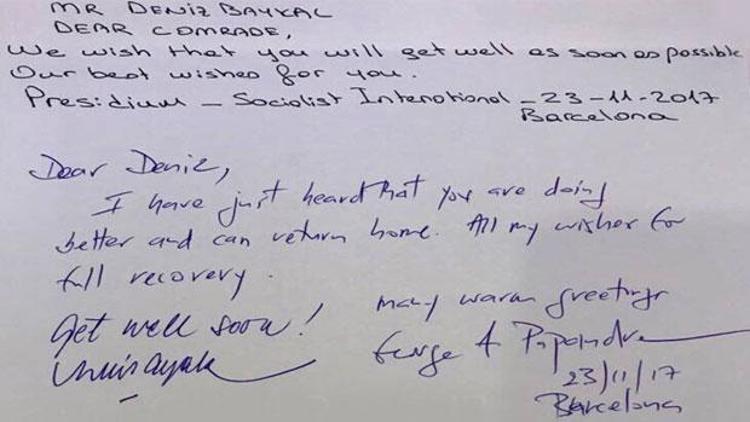 MR DENIZ BAYKAL
DEAR COMRADE,
We wish that you will get well as soon as possible
Our best wishes for you.
Presidium - Socialist International - 23-11-2017
Barcelona
Dear Deniz,
I have just heard that you are doing
better and can return home. All my wishes for
full recovery.
many warm greetings
George A Papandreou
23/11/17
Barcelona
Get well soon!